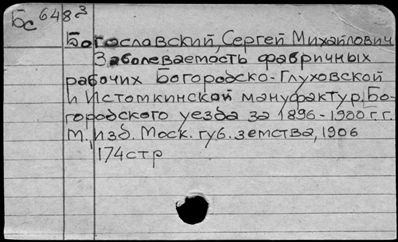 Бс 648³
Богославский, Сергей Михайлович
Заболеваемость фабричных
рабочих Богородско-Глуховской
и Истомкинской мануфактур, Бо-
городского уезда за 1896-1900 г.г.
М, изд. Моск. губ. земства, 1906
174стр